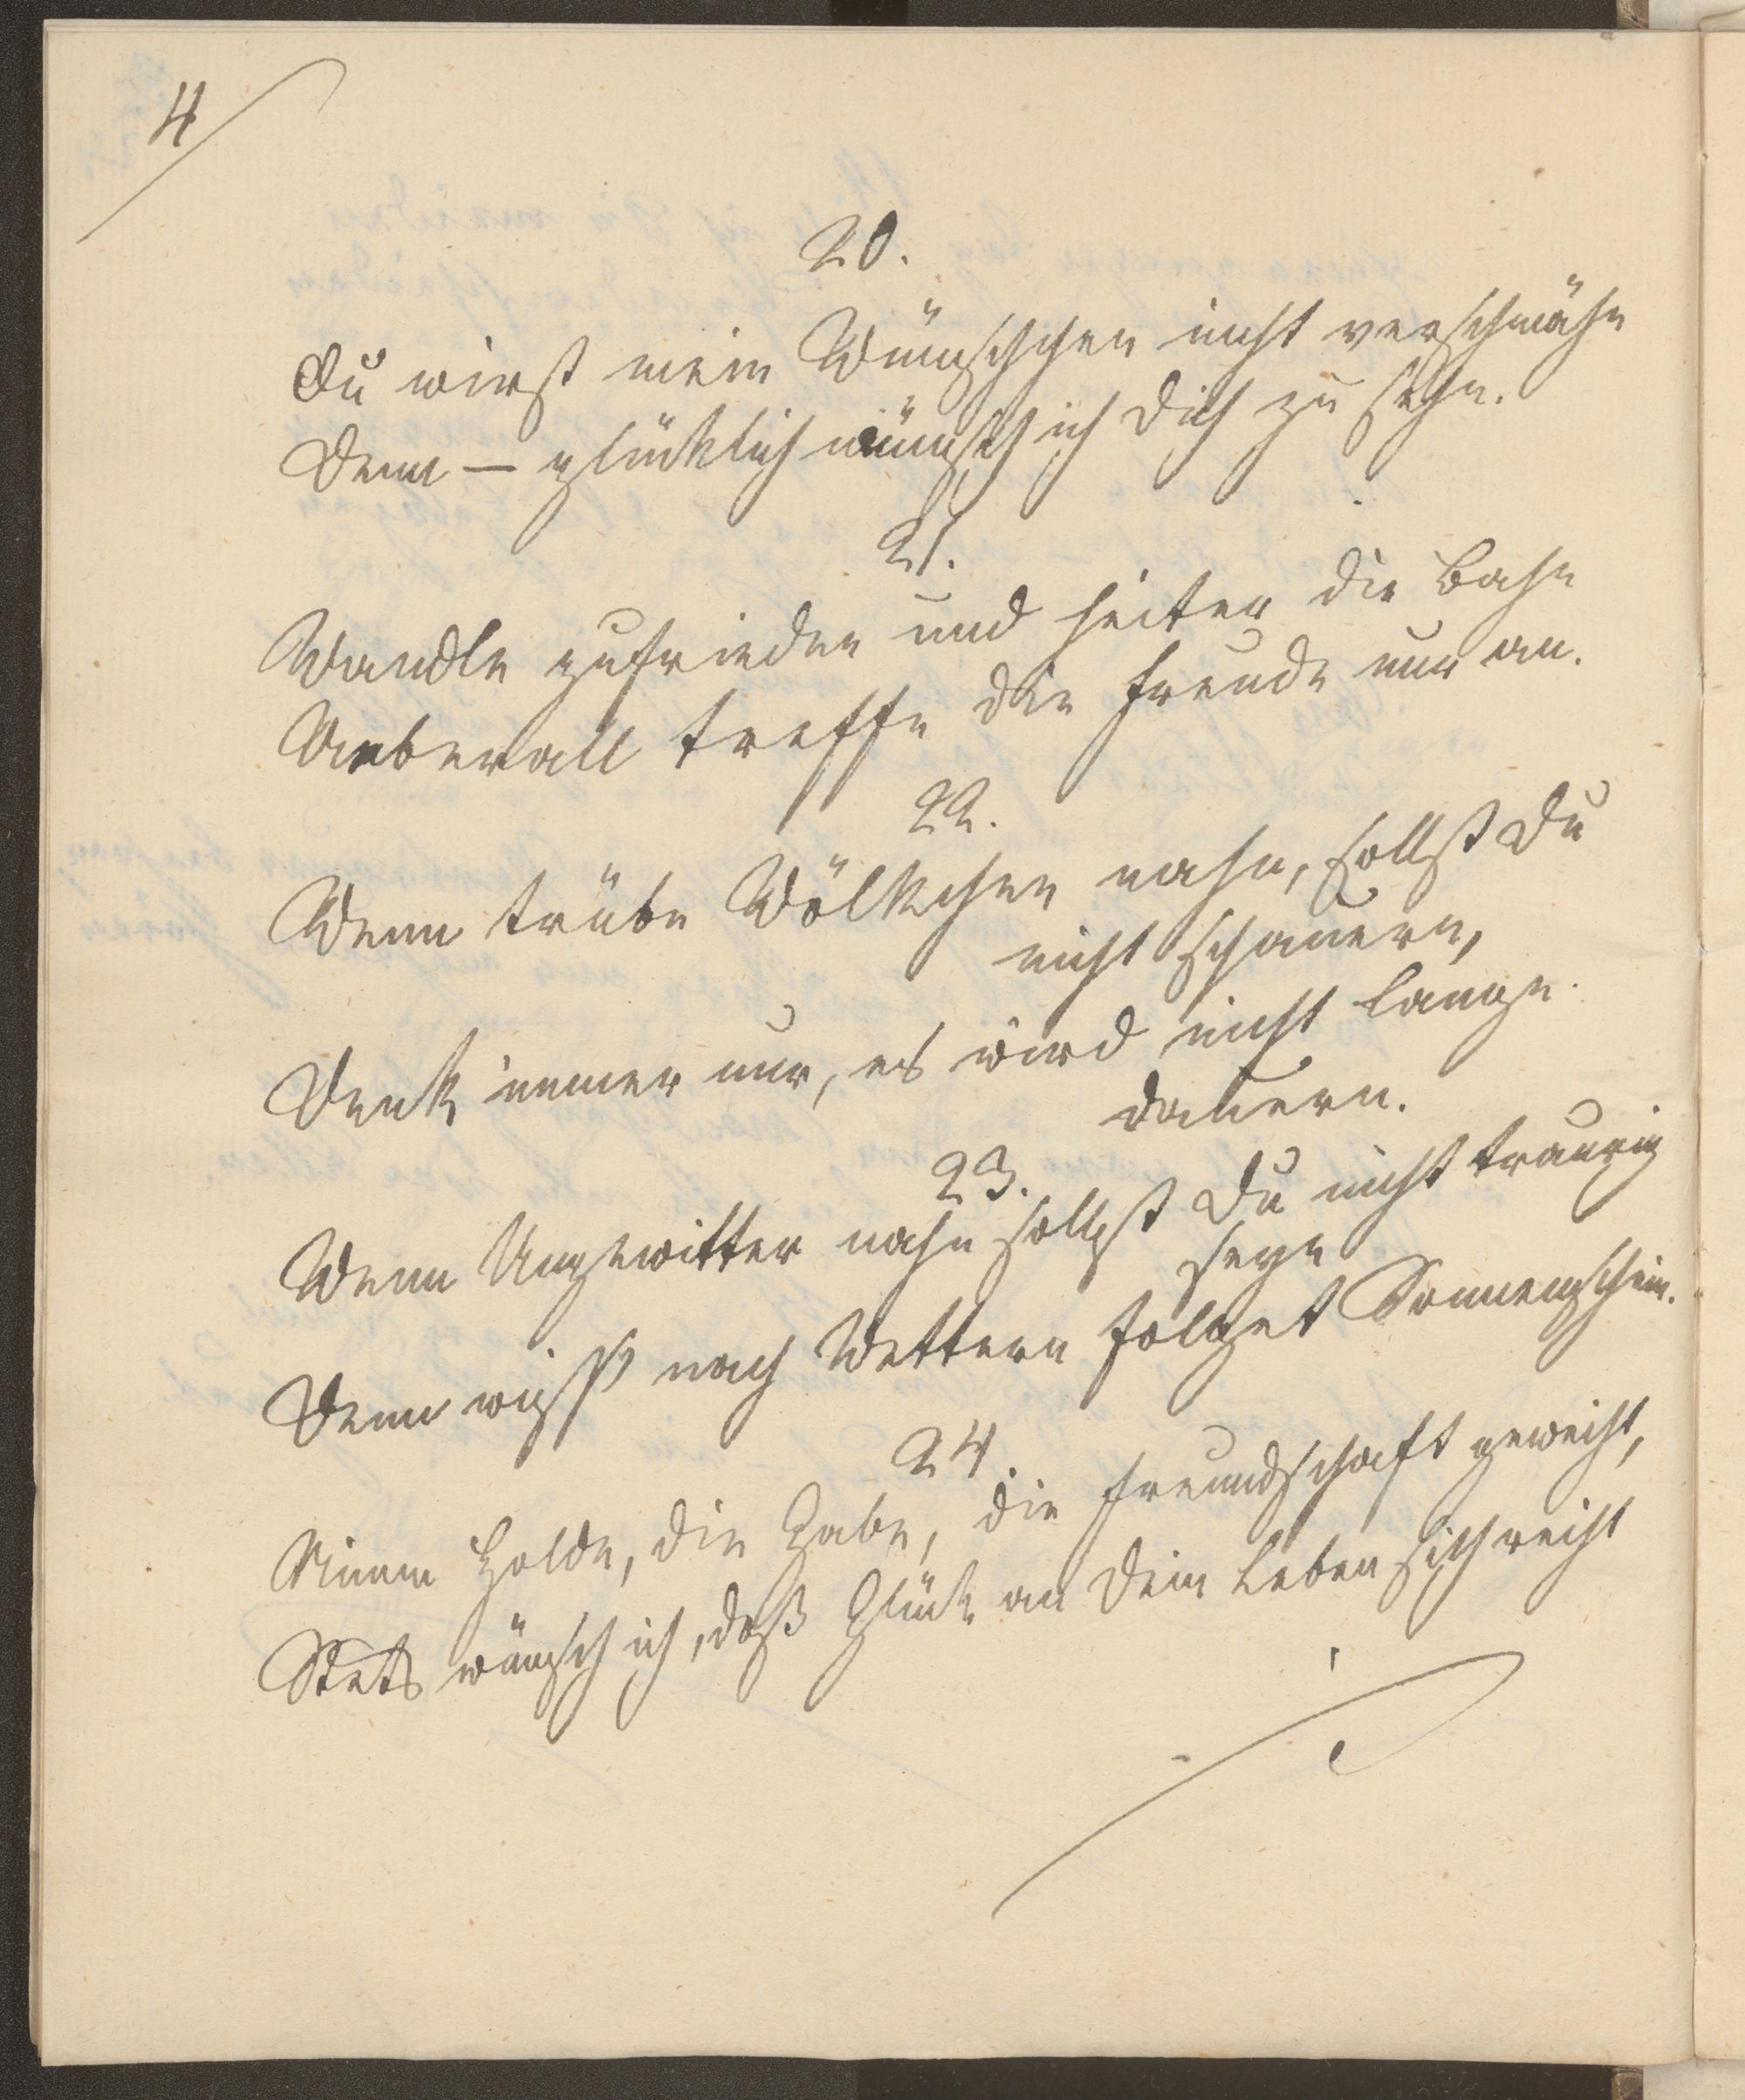 4
20.
Du wirst mein Wünschchen nicht verschmähn
Denn — glücklich wünsch ich Dich zu sehn.
21.
Wandle zufrieden und heiter die Bahn
Ueberall treffe die Freude nur an.
22.
Wenn trübe Wölkchen nahn, sollst Du
nicht schauern,
Denk immer nur, es wird nicht lange
dauern.
23.
Wenn Ungewitter nahn sollst Du nicht traurig
seyn
Denn wiß nach Wettern folget Sonnenschein.
24.
Nimm Holde, die Gabe, die Freundschaft geweiht,
Stets wünsch ich, daß Glück an Dein Leben sich reiht